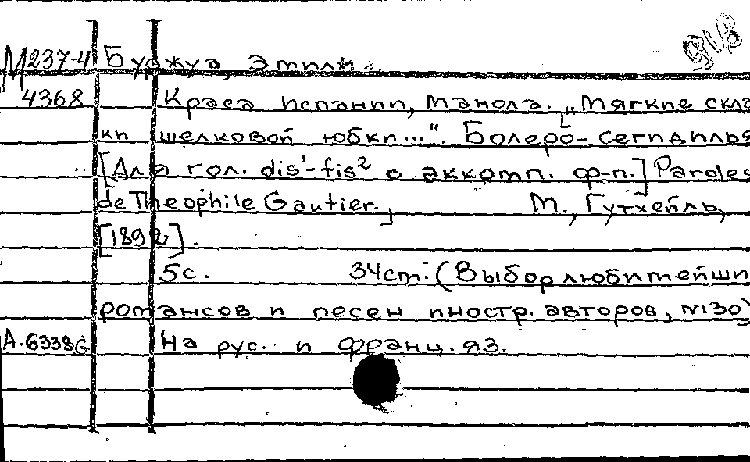 М237-4 Буджуа, Эмиль.
4368 Краса Испании, Манола. „Мягкие скла
ки шелковой юбки...". Болеро-сегидилья
[Для гол. dis¹-fis² с аккомп. ф-п.] Paroles
de Theophile Gautier. М., Гутхейль,
[1892].
5с. 34см. (Выбор любимейши
романсов и песен иностр. авторов, №130)
А.6338б На рус. и франц. яз.